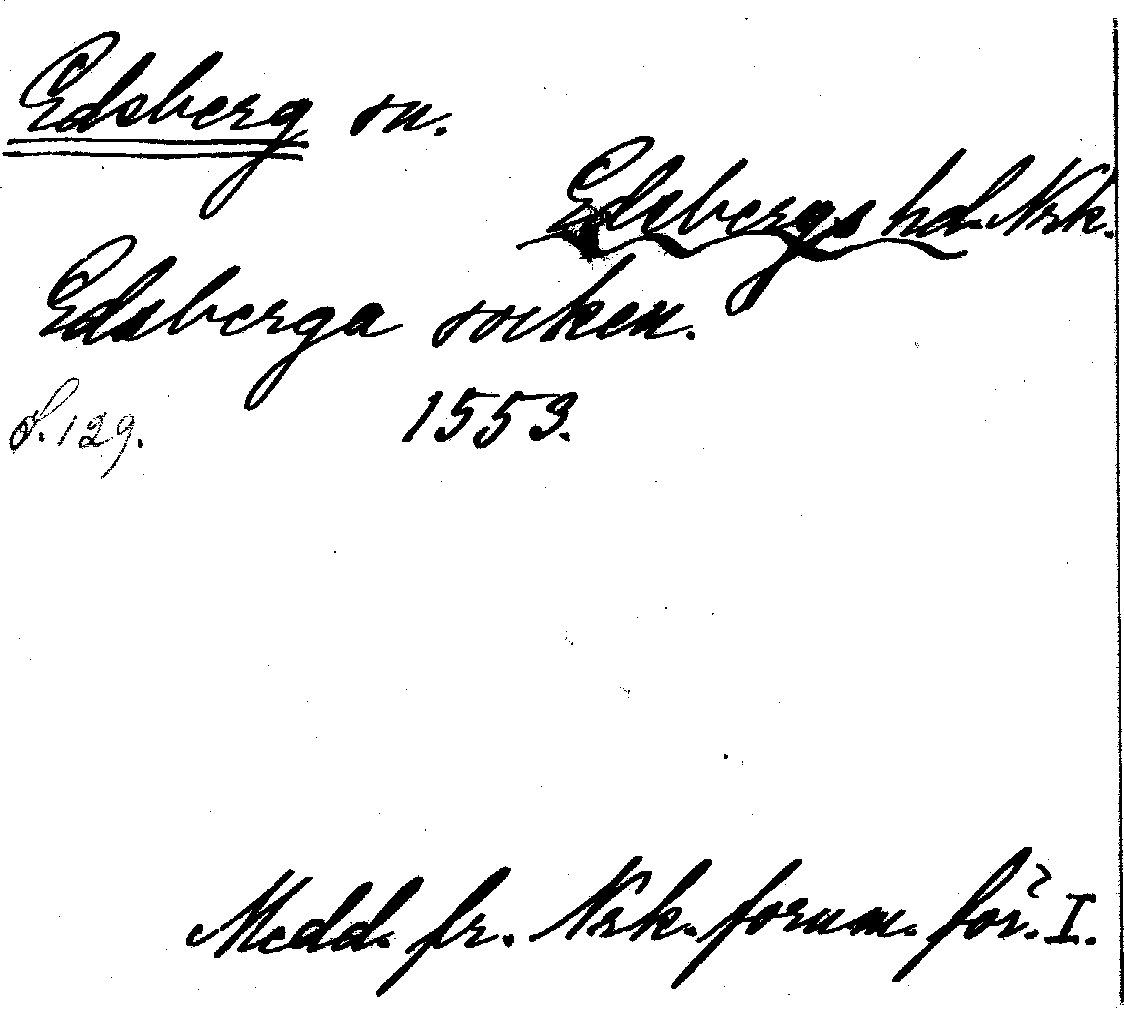 Edsberg sn.
Edsbergs hd. Nrk.
Edsberga socken.
S. 129. 1553.
Medd. fr. Nrk. fornm. för. I.